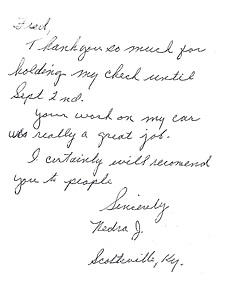 Fred,
Thank you so much for
holding my check until
Sept 2nd.
Your work on my car
was really a great job.
I certainly will recomend
you to people
Sincerely
Nedra J.
Scottsville, Ky.